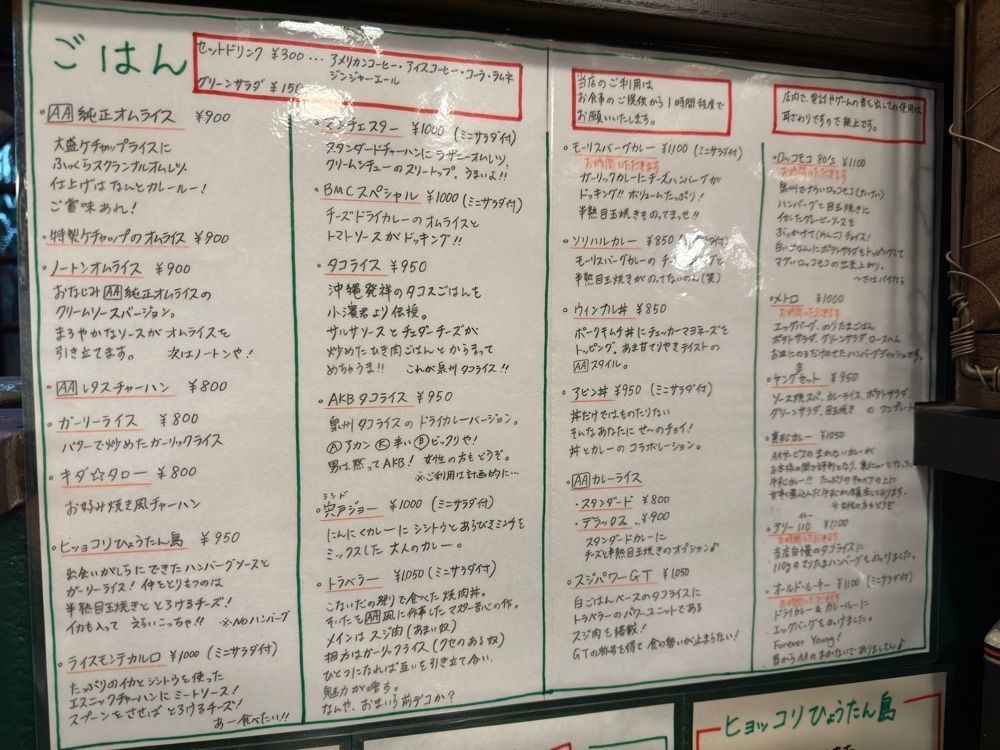 ごはん
セットドリンク ¥300… アメリカンコーヒー・アイスコーヒー・コーラ・ラムネ
ジンジャーエール
グリーンサラダ ¥150
・AA純正オムライス ¥900
大盛ケチャップライスに
ふっくらスクランブルオムレツ、
仕上げはなんとカレールー!
ご賞味あれ!
・特製ケチャップのオムライス ¥900
・ノートンオムライス ¥900
おなじみAA純正オムライスの
クリームソースバージョン。
まろやかなソースがオムライスを
引き立てます。 次はノートンや!
・AAレタスチャーハン ¥800
・ガーリーライス ¥800
バターで炒めたガーリックライス
・キダ☆タロー ¥800
お好み焼き風チャーハン
・ヒョッコリひょうたん島 ¥950
出会いがしらにできたハンバーグソースと
ガーリーライス! 仲をとりもつのは
半熟目玉焼きととろけるチーズ!
イカも入って えらいこっちゃ!! ※NOハンバーグ
・ライスモンテカルロ ¥1000 (ミニサラダ付)
たっぷりのイカとシシトウを使った
エスニックチャーハンにミートソース!
スプーンをさせば とろけるチーズ!
あー食べたい!!
・マンチェスター ¥1000 (ミニサラダ付)
スタンダードチャーハンに ラザニーオムレツ、
クリームシチューのスリートップ。うまいよ!!
・BMCスペシャル ¥1000 (ミニサラダ付)
チーズドライカレーのオムライスと
トマトソースがドッキング!!
・タコライス ¥950
沖縄発祥のタコスごはんを
小濱君より伝授。
サルサソースとチェダーチーズが
炒めたひき肉ごはんとからまって
めちゃうま!! これが泉州タコライス!!
・AKBタコライス ¥950
泉州タコライスの ドライカレーバージョン。
Ⓐアカン Ⓚ辛い Ⓑビックリや!
男は黙ってAKB! 女性の方もどうぞ。
※ご利用は計画的に…
シシド
・宍戸ジョー ¥1000 (ミニサラダ付)
にんにくカレーに シシトウとあらびきミンチを
ミックスした 大人のカレー。
・トラベラー ¥1050 (ミニサラダ付)
こないだの祭りで食べた焼肉丼。
そいたをAA風に作事したマスター苦心の作。
メインは スジ肉 (あまい奴)
相方はガーリックライス (クセのある奴)
ひとつになれば互いを引き立て合い
魅力が増す。
なんや、おまいら前デコか?
当店のご利用は
お食事のご提供から1時間程度で
お願いいたします。
・モーリスバーグカレー ¥1100 (ミニサラダ付)
お時間いただきます
ガーリックカレーにチーズハンバーグが
ドッキング!! ボリュームたっぷり!
半熟目玉焼きものってませ!!
・ソリハルカレー ¥850
モーリスバーグカレーの
半熟目玉焼きがのてないのん(笑)
・ウィンブル丼 ¥850
ポークキムチ丼にチェッカーマヨネーズを
トッピング。あま甘てりやきテイストの
AAスタイル。
・アビン丼 ¥950 (ミニサラダ付)
丼だけではものたりない
そんなあなたに せ〜のチョイ!
丼とカレーのコラボレーション。
・AAカレーライス
・スタンダード ¥800
・デラックス ¥900
スタンダードカレーに
チーズと半熟目玉焼きのオプション♪
・スジパワーGT ¥1050
白ごはんベースのタコライスに
トラベラーのパワーユニットである
スジ肉を搭載!
GTの称号を得て 食の勢いが止まらない!
店内で、電話やゲームの音を出しての使用は
耳ざわりですので禁止です。
・ロッコモコ 80's ¥1100
お時間いただきます
ハンバーグと目玉焼きに
イカしたグレービーソースを
ぶっかけて(めんご)チョイ!
白いごはんにポテトサラダをトッピングして
マブいロッコモコの出来上がり。
〜ではバイナラ
・メトロ ¥1000
お時間いただきます
エッグバーグ、のりたまごはん
ポテトサラダ、グリーンサラダ、ロースハム
お皿にのるだけのせたハンバーグディッシュです。
・ヤングセット ¥950
ソース焼スパ、カレーライス、ポテトサラダ、
グリーンサラダ、目玉焼き の ワンプレート
・裏牛カレー ¥1050
AAサービスのまかないカレーが
お客様の間で評判となり、裏メニューとなった
牛すじカレー!! たっぷりのキャベツの上に
・デリー110 ¥1100
お時間いただきます
当店自慢のタコライスに
110gのてりたまハンバーグをのっけました。
・オールド・ルーキー ¥1100 (ミニサラダ付)
お時間いただきます
ドライカレー&カレールーに
エッグバーグをのっけました。
Forever Young!
昔からAAのまかないでありましてん♪
ヒョッコリひょうたん島